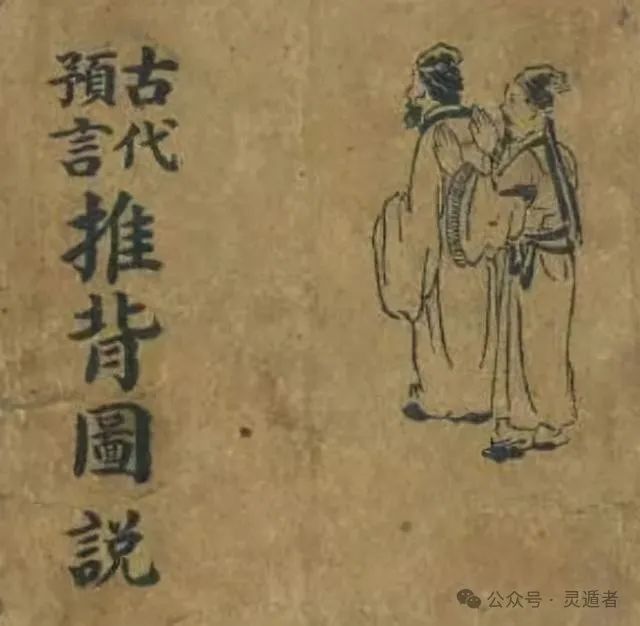 古代
預言
推背圖說
公众号·灵遁者